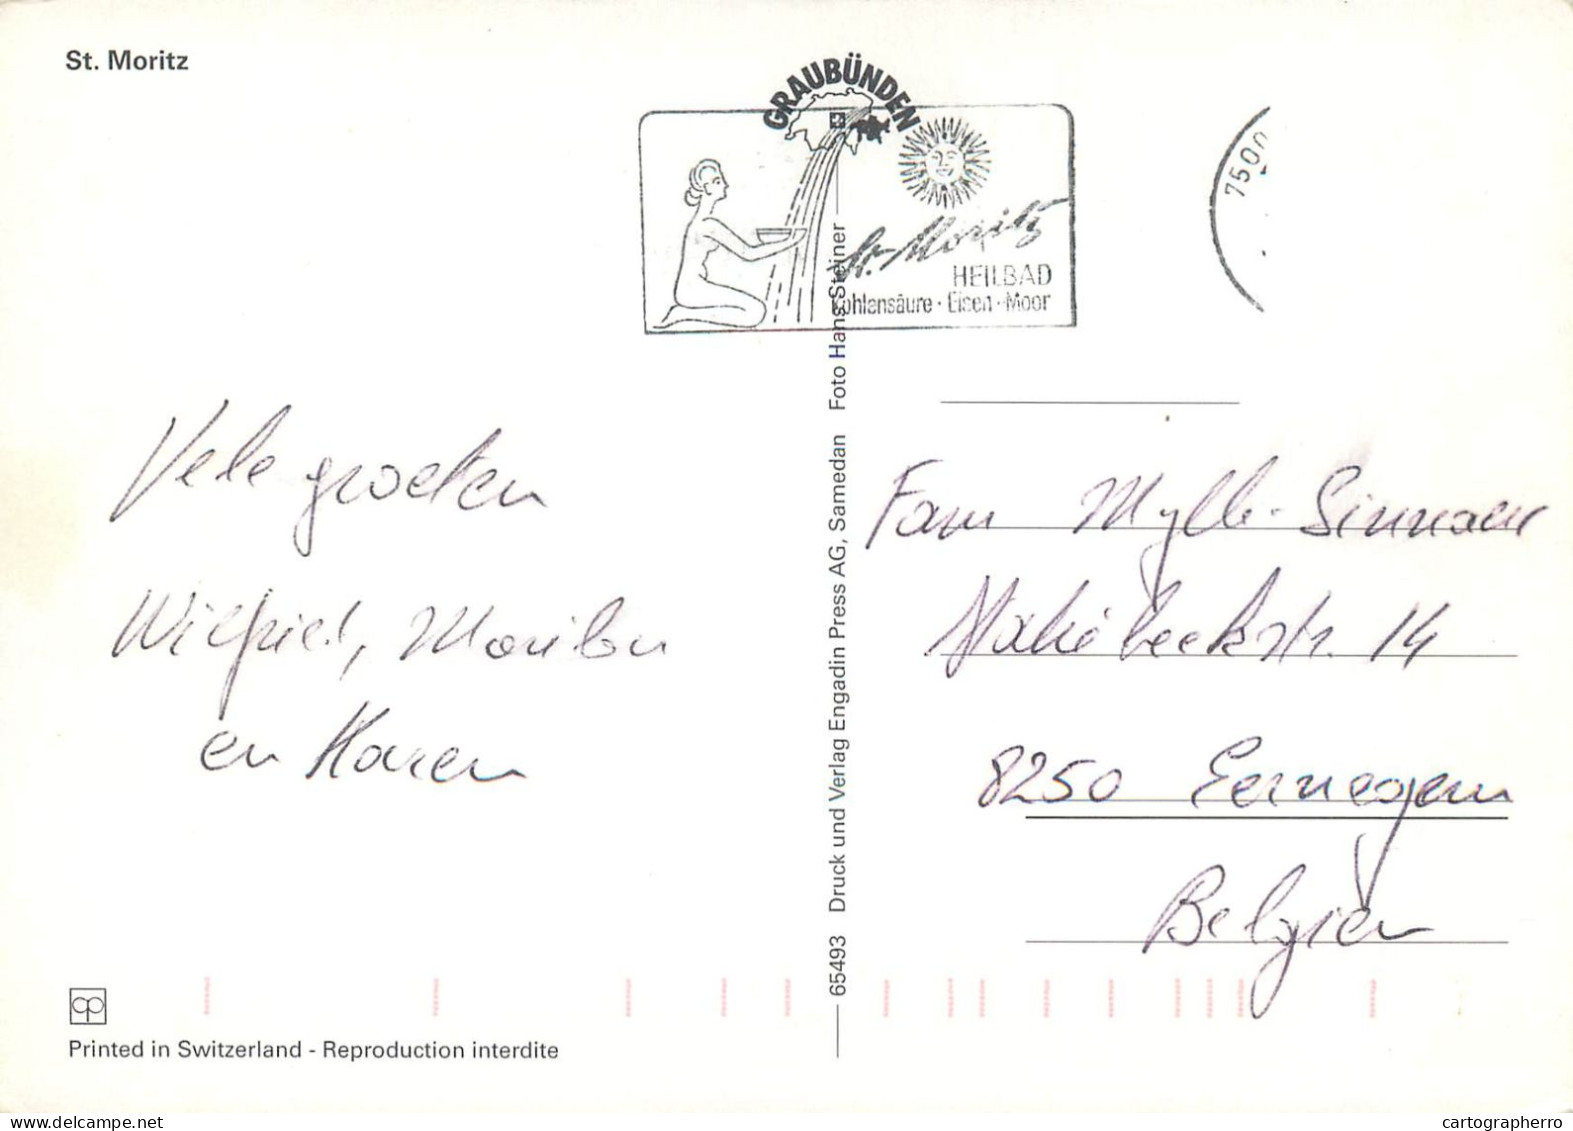 St. Moritz
GRAUBÜNDEN
St. Moritz
HEILBAD
Kohlensäure · Eisen · Moor
7500
Vele groeten
Wilfried, Marilou
en Karen
Fam Mylle-Sinnaeve
14
8250 Eernegem
Belgien
65493 Druck und Verlag Engadin Press AG, Samedan Foto Hans Steiner
cp
Printed in Switzerland - Reproduction interdite
delcampe.net
cartographerro